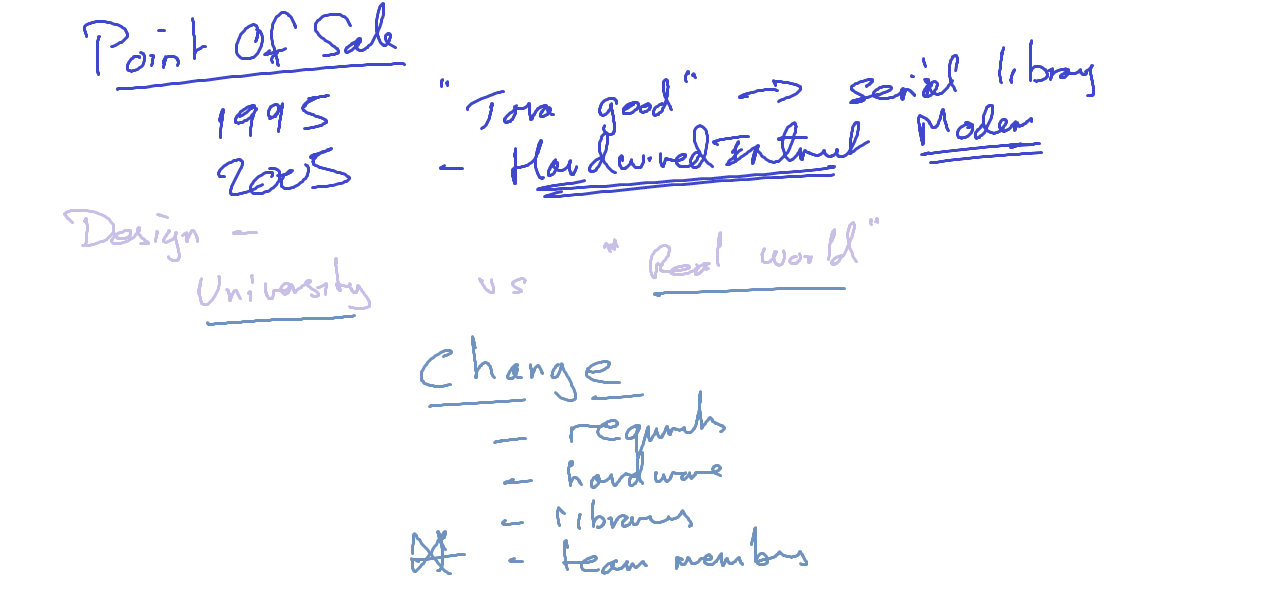 Point Of Sale
1995 "Java good" → serial library
2005 - Hardwired Internet Modem
Design -
University vs "Real world"
Change
- requirmts
- hardware
- libraries
- team members